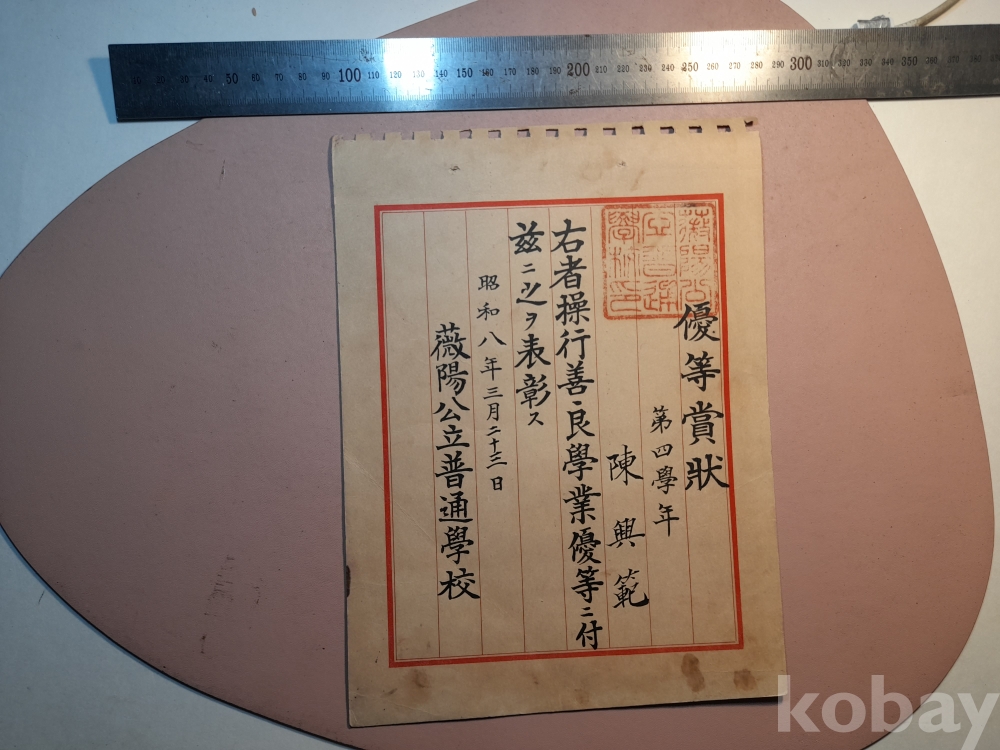 優等賞狀
第四學年
陳興範
右者操行善良學業優等ニ付
玆ニ之ヲ表彰ス
昭和八年三月二十三日
薇陽公立普通學校
薇陽公
立普通
學校印
50 60 70 80 90 100 110 120 130 140 150 160 170 180 190 200 210 220 230 240 250 260 270 280 290 300 310 320 330 340 350 360 370 380
kobay